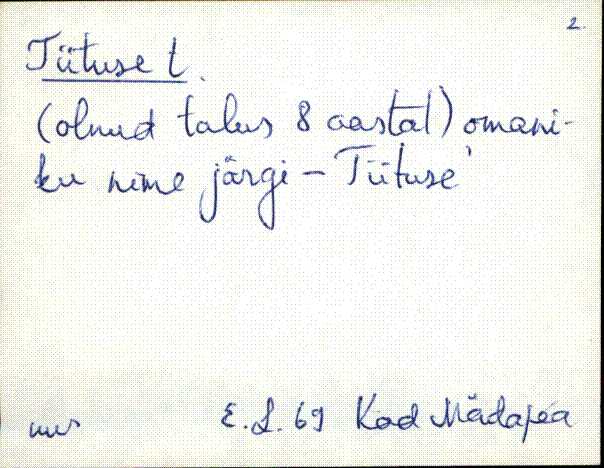 2.
Tiituse t.
(olnud talus 8 aastat) omani-
ku nime järgi – Tiituse'
E. L. 69 Kod Mädapea